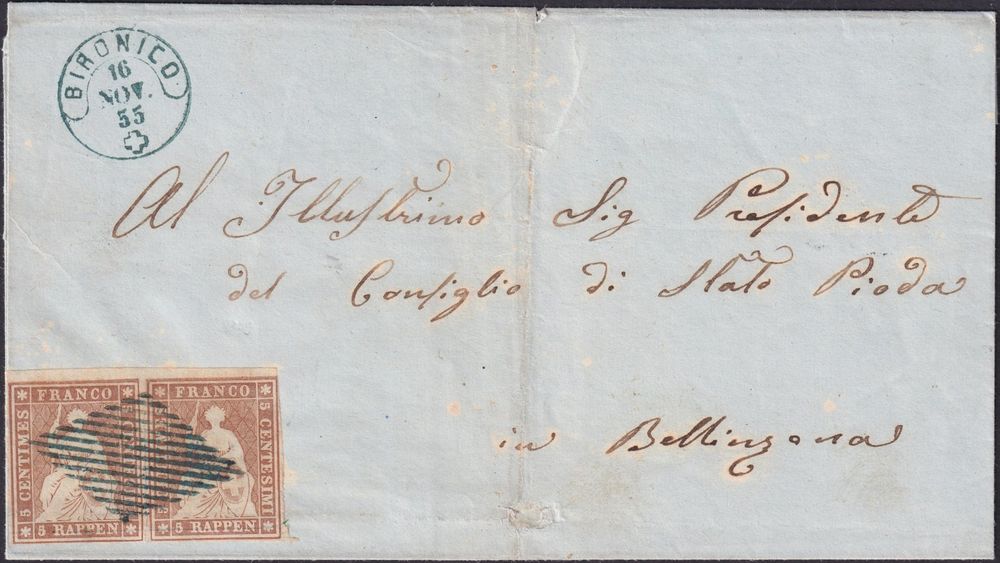 BIRONICO
16
NOV.
55
Al Illustrimo Sig Presidente
del Consiglio di Stato Pioda
in Bellinzona
FRANCO
5 CENTIMES
5 RAPPEN
FRANCO
5 CENTESIMI
5 RAPPEN